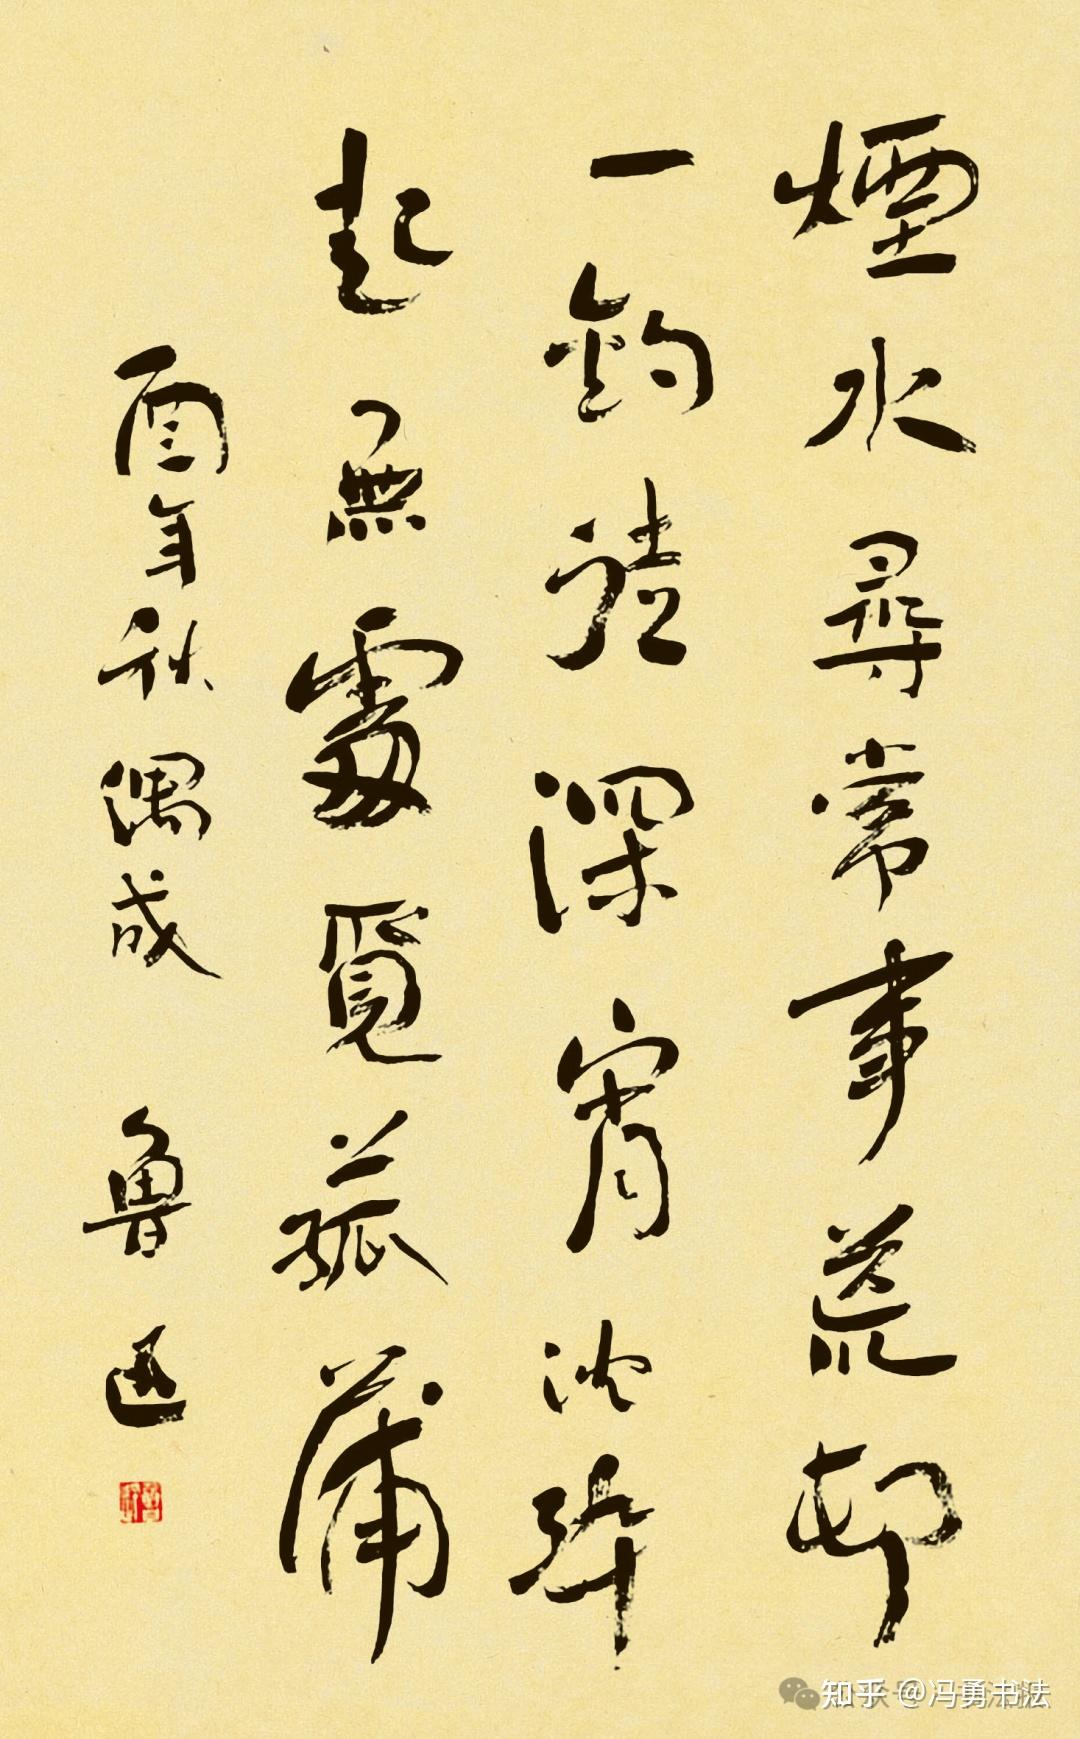 煙水尋常事荒邨
一釣徒深宵沈醉
起無處覓菰蒲
酉年秋偶成 魯迅
知乎 @冯勇书法